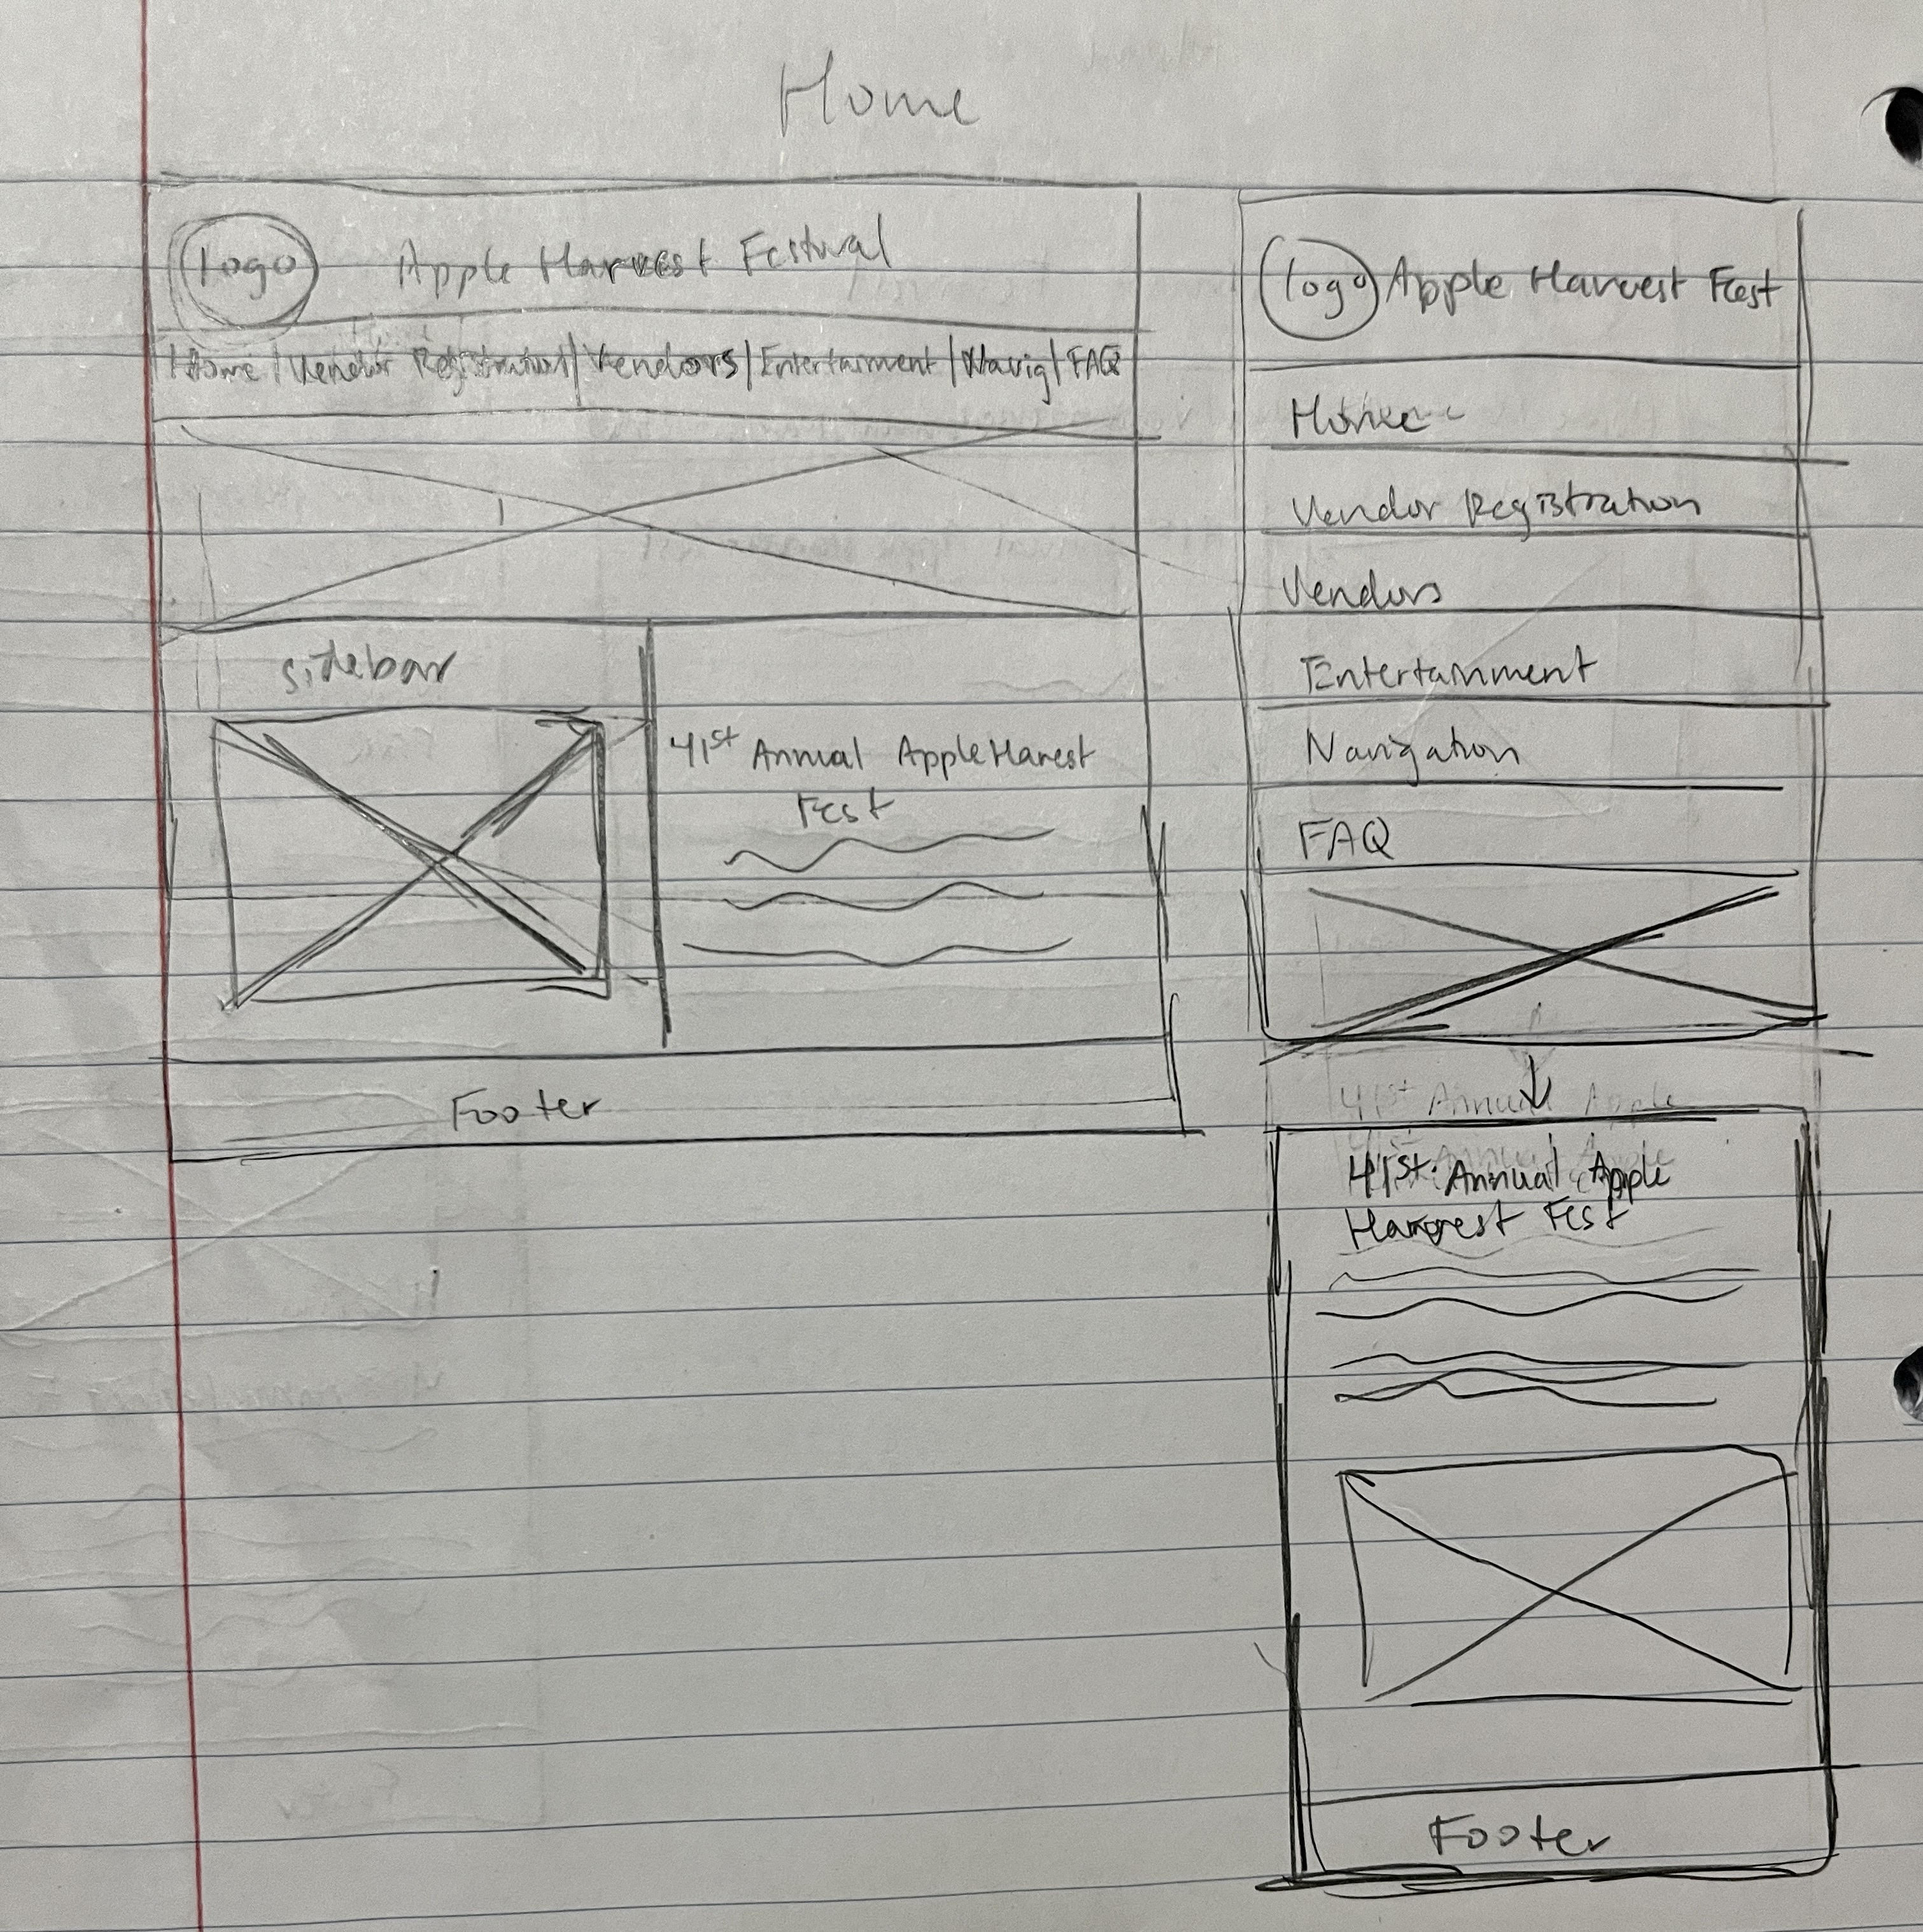 Home
logo Apple Harvest Festival
Home | Vendor Registration | Vendors | Entertainment | Navig | FAQ
sidebar
41st Annual Apple Harest
Fest
Footer
logo Apple Harvest Fest
Home
Vendor Registration
Vendors
Entertainment
Navigation
FAQ
41st Annual Apple
41st Annual Apple
Harvest Fest
Footer